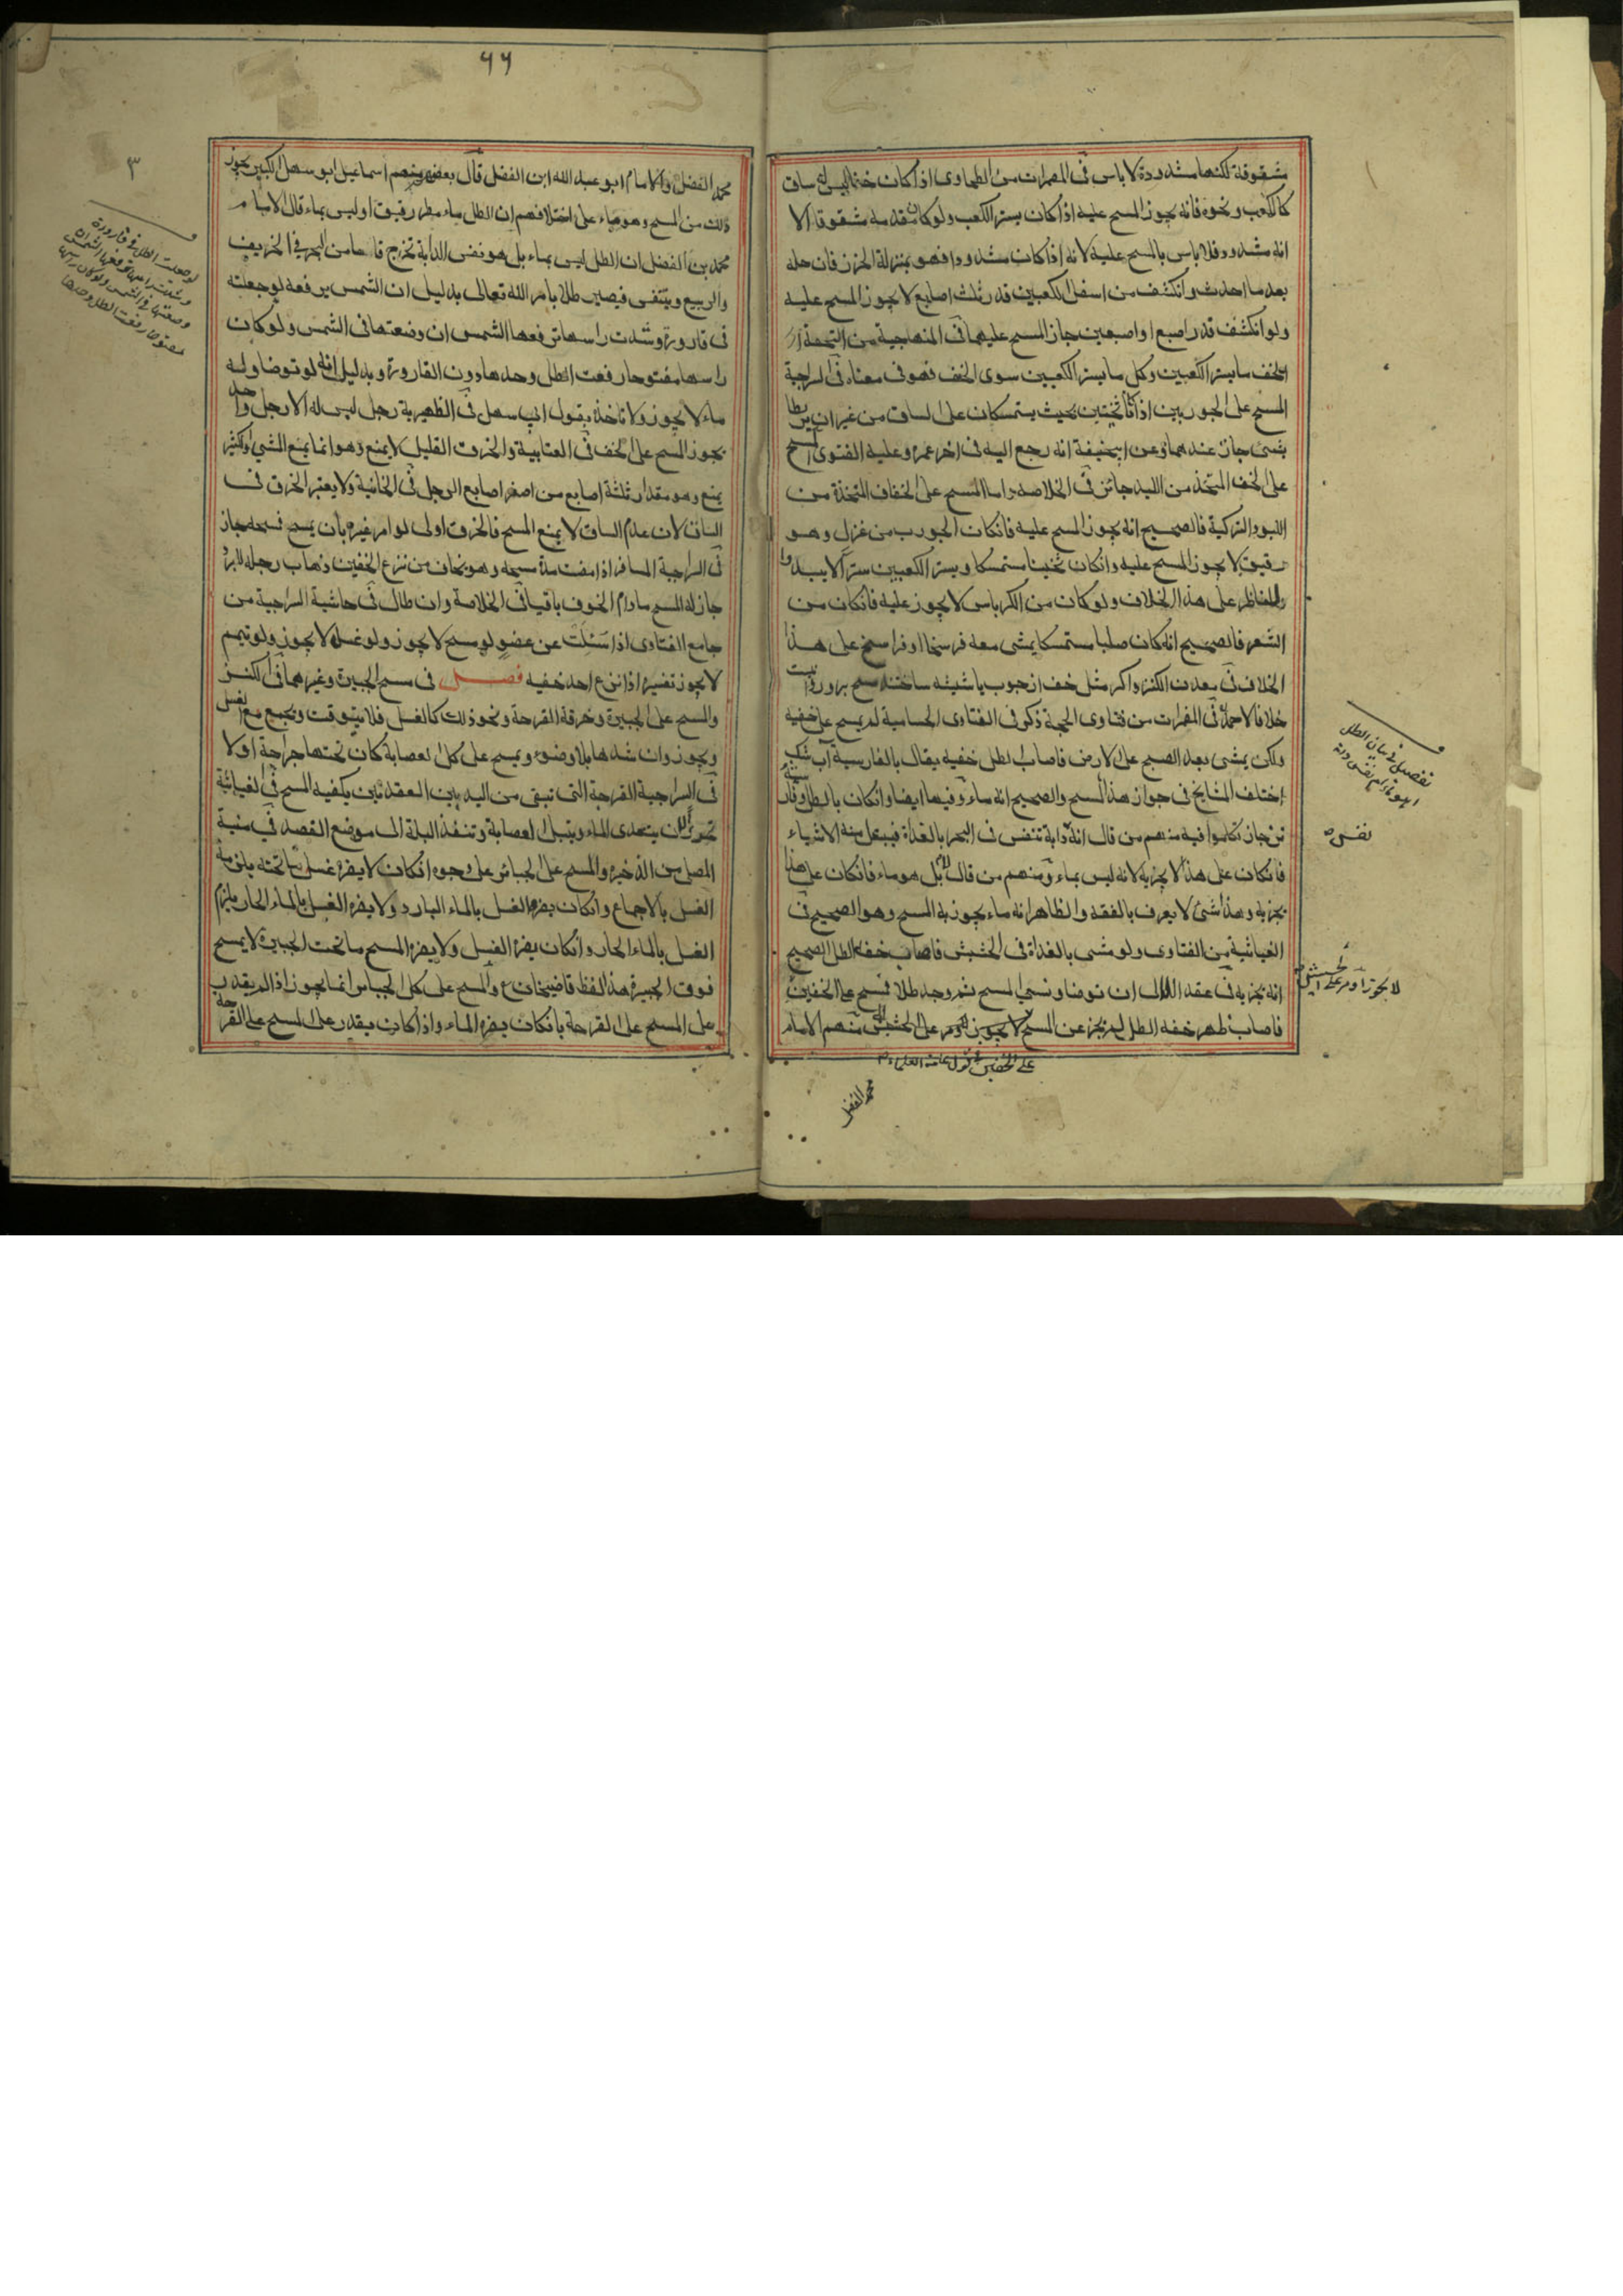 مشقوقة لكنها مشدودة لا باس فى المضمرات من الطحاوى اذا كان خفا ليس له ساق
كالكعب ونحوه فانه يجوز المسح عليه اذا كان يستر الكعب ولو كان مقدمه مشقوقا الا
انه مشدود فلا باس بالمسح عليه لانه اذا كان مشدودا فهو بمنزلة الخرز فان حله
بعد ما احدث وانكشف من اسفل الكعبين قدر ثلث اصابع لا يجوز المسح عليه
ولو انكشف قدر اصبع او اصبعين جاز المسح عليهما فى المنهاجية من
الخف ما يستر الكعبين وكل ما يستر الكعبين سوى الخف فهو فى معناه فى السراجية
المسح على الجوربين اذا كانا ثخينين بحيث يستمسكان على الساق من غير ان يربطا
بشئ جاز عندهما وعن ابيحنيفة انه رجع اليه فى اخر عمره وعليه الفتوى المسح
على الخف المتخذ من اللبد جائز فى الخلاصه واما المسح على الخفاف المتخذة من
اللبود التركية فالصحيح انه يجوز المسح عليه فانكان الجورب من غزل وهو
رقيق لا يجوز المسح عليه وانكان ثخينا مستمسكا ويستر الكعبين سترا لا يبدوا
للناظر على هذا الخلاف ولو كان من الكرباس لا يجوز عليه فانكان من
الشعر فالصحيح انه كان صلبا مستمسكا يمشى معه فرسخا او فراسخ على هذا
الخلاف فى معدن الكنز واكر مثل خف از جوب يا شيشه ساختند مسح برو روا نيست
خلافا لاحمد فى المضمرات من فتاوى الحجة ذكر فى الفتاوى الحسامية لم يمسح على خفيه
ولكن يمشى بعد الصبح على الارض فاصاب الطل خفيه يقال بالفارسية
اختلف المشايخ فى جواز هذا المسح والصحيح انه ماء وفيها ايضا وانكان بالطل وقال
جاز تكلموا فيه منهم من قال انه دابة تنفس فى البحر بالغداة فيبتل منه الاشياء
فانكان على هذا لا يجزيه لانه ليس بماء ومنهم من قال لا بل هو ماء فانكان على هذا
يجزيه وهذا شئ لا يعرف بالفقه والظاهر انه ماء يجوز به المسح وهو الصحيح فى
الغياثية من الفتاوى ولو مشى بالغداة فى الحشيش فاصاب خفه الطل الصحيح
انه يجزيه فى عقد اللال ان توضا ونسى المسح ثم وجد طلا فمسح على الخفين
فاصاب ظهر خفه الطل لم يجز عن المسح لا يجوز على الحشيش منهم الامام
على الخفين فى قول عامة العلماء
محمد الفضل
تفصيل فى بيان الطل
نفس
لا يجوز او مر على الحشيش
٦٦
٣
محمد الفضل والامام ابو عبد الله ابن الفضل قال بعضهم منهم اسماعيل ابو سهل الكبير يجوز
ذلك من المسح وهو بناء على اختلافهم ان الطل ماء مطر رقيق او ليس بماء قال الامام
محمد بن الفضل ان الطل ليس بماء بل هو نفس الدابة تخرج فاها من البحر فى الخريف
والربيع ويتنفس فيصير طلا بامر الله تعالى بدليل ان الشمس يرفعه لو جعلته
فى قارورة وشدت راسها ترفعها الشمس ان وضعتها فى الشمس ولو كان
راسها مفتوحا رفعت الطل وحدها دون القارورة وبدليل انه لو توضا وله
ماء لا يجوز ولا ناخذ بقول ابى سهل فى الظهيرية رجل ليس له الا رجل واحد
يجوز المسح على الخف فى العتابية والخرق القليل لا يمنع وهو انما يمنع المشى والكثير
يمنع وهو مقدار ثلثة اصابع من اصغر اصابع الرجل فى الخانية ولا يعتبر الخرق فى
الساق لان عدم الساق لا يمنع المسح فالخرق اولى لو امر غيره بان يمسح فمسحه جاز
فى السراجية المسافر اذا مضت مدة مسحه وهو يخاف من نزع الخفين ذهاب رجله للبرد
جاز له المسح مادام الخوف باقيا فى الخلاصة وان طال فى حاشية السراجية من
جامع الفتاوى اذا سئلت عن عضو لو مسح لا يجوز ولو غسله لا يجوز ولو تيمم
لا يجوز تفسيره اذا نزع احد خفيه فصل فى مسح الجبيرة وغيرهما فى الكنز
والمسح على الجبيرة وخرقة القرحة ونحو ذلك كالغسل فلا يتوقت ويجمع مع الغسل
ويجوز وان شدها بلا وضوء ويمسح على كل العصابة كان تحتها جراحة او لا
فى السراجية القرحة التى تبقى من اليد بين العقدتين يكفيه المسح فى الغياثية
لان يتعدى الماء ويبتل العصابة وتنفذ البلة الى موضع الفصد فى منية
المصلى من الذخيرة والمسح على الجبائر على وجوه انكان لا يضره غسل ما تحته يلزمه
الغسل بالاجماع وانكان يضره الغسل بالماء البارد ولا يضره الغسل بالماء الحار يلزم
الغسل بالماء الحار وانكان يضره الغسل ولا يضره المسح ما تحت الجبيرة لا يمسح
فوق الجبيرة هذا لفظ قاضيخان والمسح على كل الجبائر انما يجوز اذا لم يقدر
على المسح على القرحة بانكان يضره الماء واذا كان يقدر على المسح على القرحة
لو جعلت الطل فى قارورة
وشدت راسها ترفعها الشمس ان
وضعتها فى الشمس ولو كان راسها
مفتوحا رفعت الطل وحدها